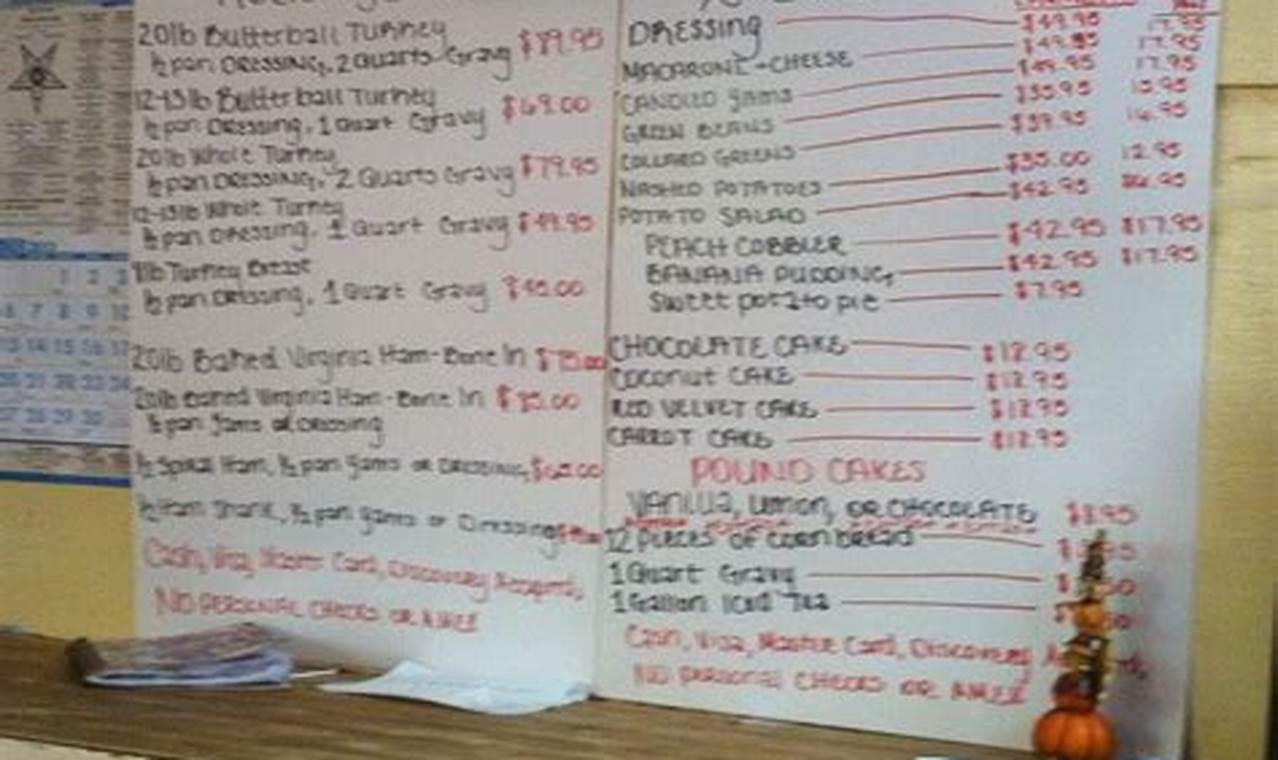 20lb Butterball Turkey
½ pan Dressing, 2 Quarts Gravy $89.95
12-15lb Butterball Turkey
½ pan Dressing, 1 Quart Gravy $69.00
20lb Whole Turkey
½ pan Dressing, 2 Quarts Gravy $79.95
12-15lb Whole Turkey
½ pan Dressing, 1 Quart Gravy $49.95
lb Turkey Breast
½ pan Dressing, 1 Quart Gravy $45.00
20lb Baked Virginia Ham-Bone In $75.00
20lb Baked Virginia Ham-Bone In
½ pan Yams or Dressing
½ Spiral Ham, ½ pan Yams or Dressing
½ Ham Shank, ½ pan Yams or Dressing
Cash, Visa, Master Card, Discovery Accepted,
NO PERSONAL CHECKS OR AMEX
DRESSING $49.95 17.95
MACARONI -CHEESE $49.95 17.95
CANDIED YAMS $49.95 17.95
GREEN BEANS $39.95 15.95
COLLARD GREENS $39.95 16.95
MASHED POTATOES $35.00 12.95
POTATO SALAD $42.95
PEACH COBBLER $42.95 $17.95
BANANA PUDDING $42.95 $17.95
Sweet potato pie $7.95
CHOCOLATE CAKE $18.95
Coconut CAKE $18.95
RED VELVET CAKE $18.95
CARROT CAKE $18.95
POUND CAKES
VANILLA, Lemon, OR CHOCOLATE $8.95
12 pieces of corn bread
1 Quart Gravy
1 Gallon Iced Tea
Cash, Visa, Master Card, Discovery
NO personal CHECKS OR AMEX
1 2 3
6 7 8 9 10
13 14 15 16 17
20 21 22 23 24
27 28 29 30